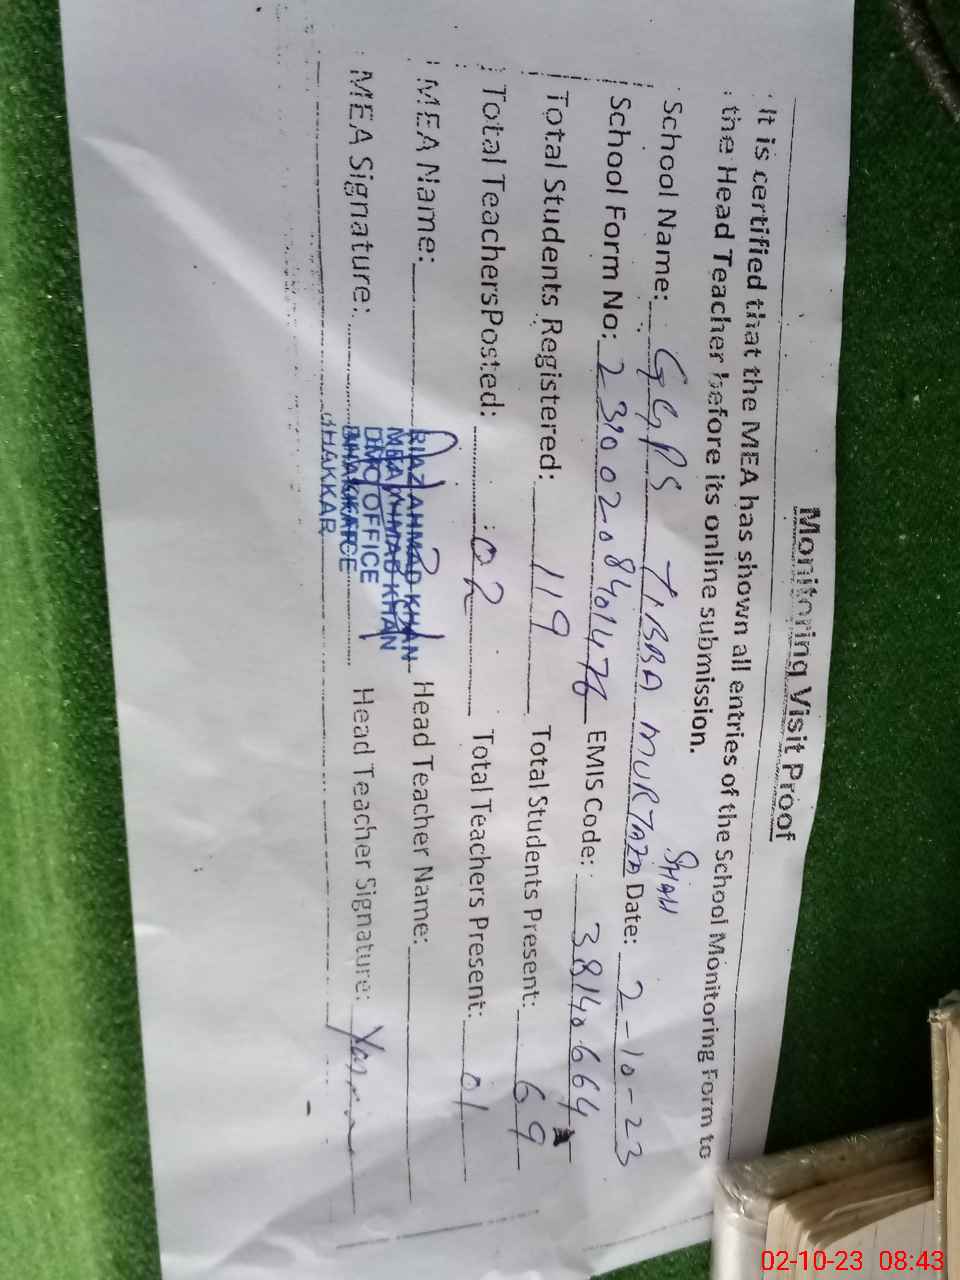 Monitoring Visit Proof
It is certified that the MEA has shown all entries of the School Monitoring Form to
the Head Teacher before its online submission.
School Name: GGPS TIBBA MURTAZA SHAH Date: 2-10-23
School Form No: EMIS Code: 38140664
Total Students Registered: 119 Total Students Present: 69
Total TeachersPosted: 02 Total Teachers Present: 01
MEA Name: RIAZ AHMAD KHAN Head Teacher Name:
MEA AHMAD KHAN
DMO OFFICE
MEA Signature: Head Teacher Signature:
BHAKKAR
02-10-23 08:43